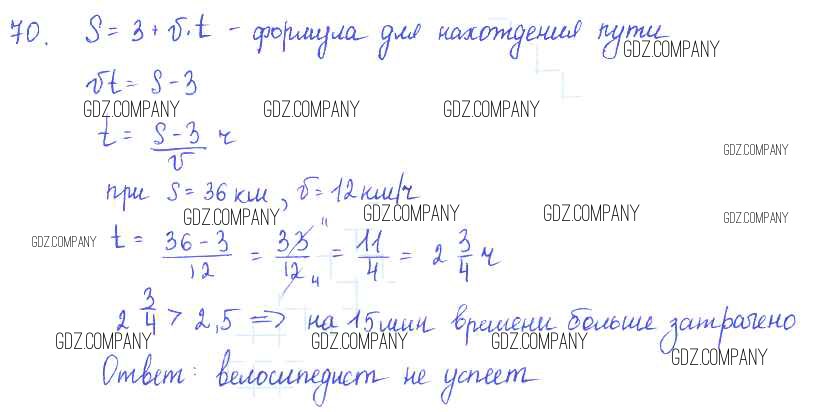 70. S = 3 + v·t - формула для нахождения пути
GDZ.COMPANY
vt = S - 3
GDZ.COMPANY GDZ.COMPANY GDZ.COMPANY
t = (S - 3)/v ч
GDZ.COMPANY
при S = 36 км, v = 12 км/ч
GDZ.COMPANY GDZ.COMPANY GDZ.COMPANY GDZ.COMPANY
GDZ.COMPANY
t = (36 - 3)/12 = 33 11/12 4 = 11/4 = 2 3/4 ч
2 3/4 > 2,5 => на 15 мин времени больше затрачено
GDZ.COMPANY GDZ.COMPANY GDZ.COMPANY GDZ.COMPANY
Ответ: велосипедист не успеет